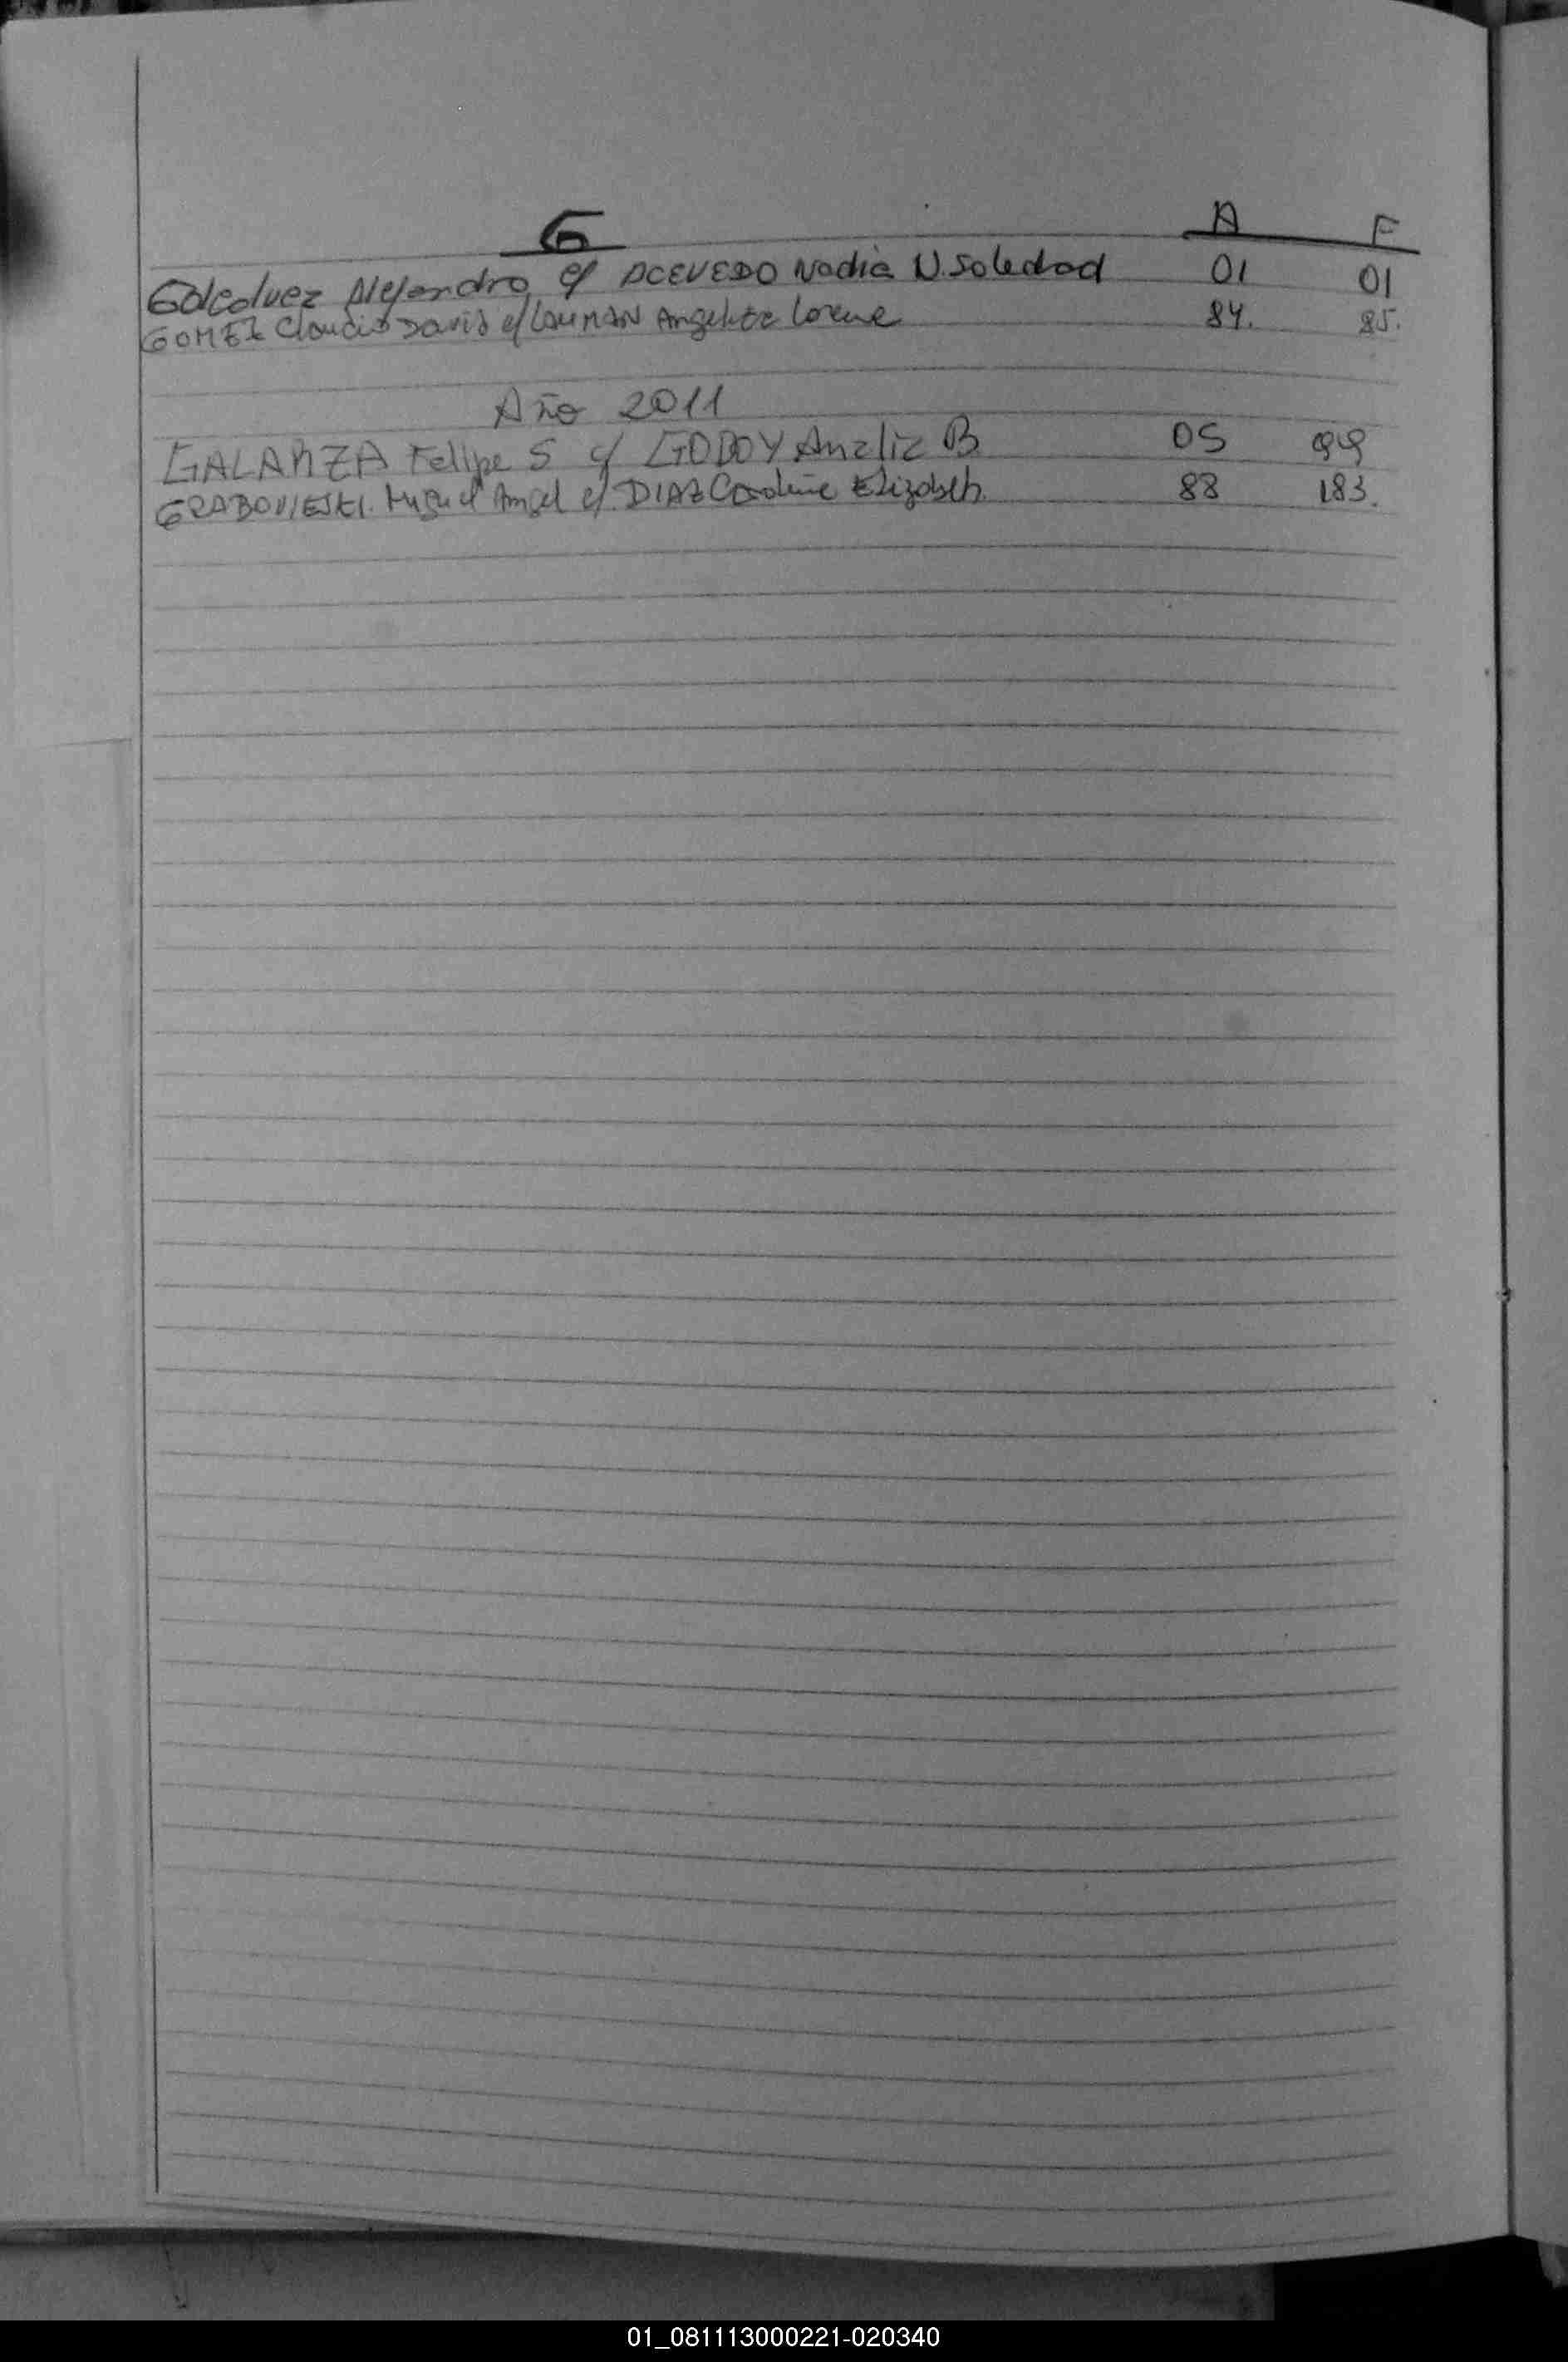 G A F
Golcoluez Alejandro c/ ACEVEDO Nadia N. Soledad 01 01
GOMEZ Claudio David c/ Angelica Lorena 84. 85.
Año 2011
GALARZA Felipe S c/ GODOY Analia B 05 99
GRABOVIESKI. Miguel Angel c/ DIAZ Caroline Elizabeth. 88 183.
01_081113000221-020340